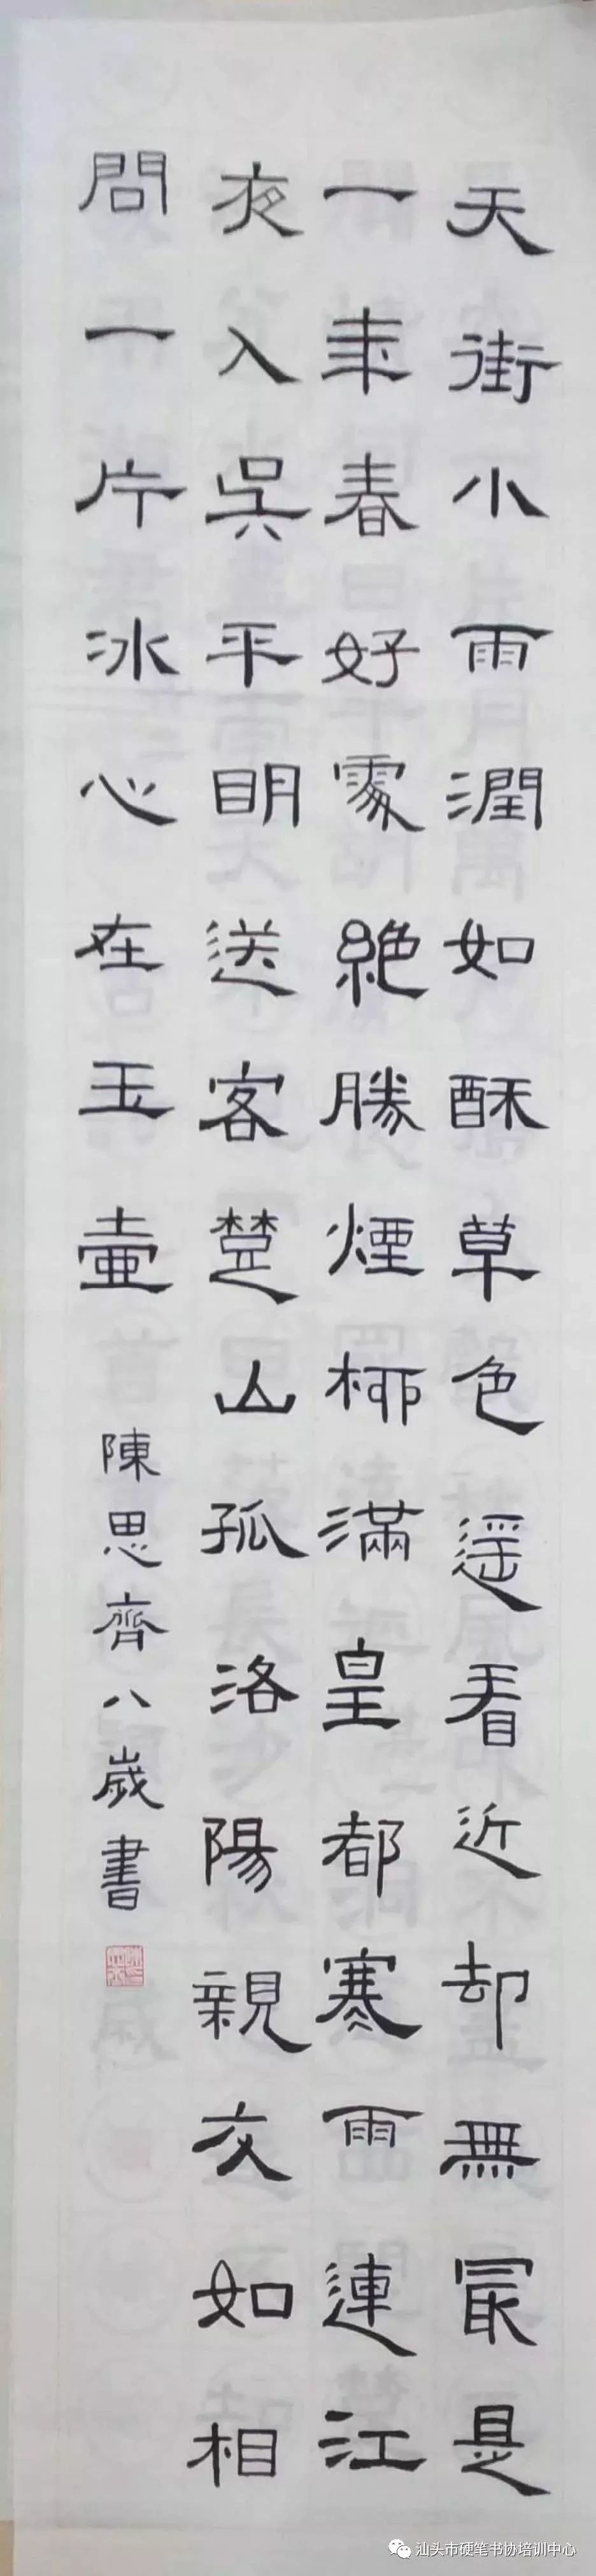 天街小雨潤如酥草色遥看近却無最是
一年春好處絶勝煙柳滿皇都寒雨連江
夜入吳平明送客楚山孤洛陽親友如相
問一片冰心在玉壷
陳思齊八歲書
汕头市硬笔书协培训中心